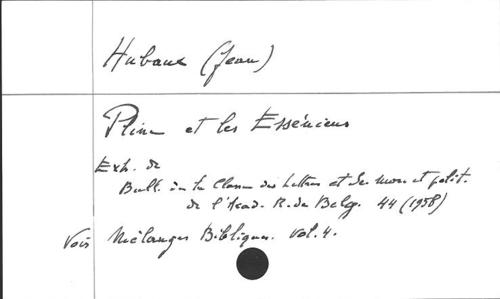 Hubaux (Jean)
Pline et les Esséniens
Extr. de
Bull. de la Classe des Lettres et des mor. et polit.
de l'Acad. R. de Belg. 44 (1958)
Voir Mélanges Bibliques. Vol. 4.